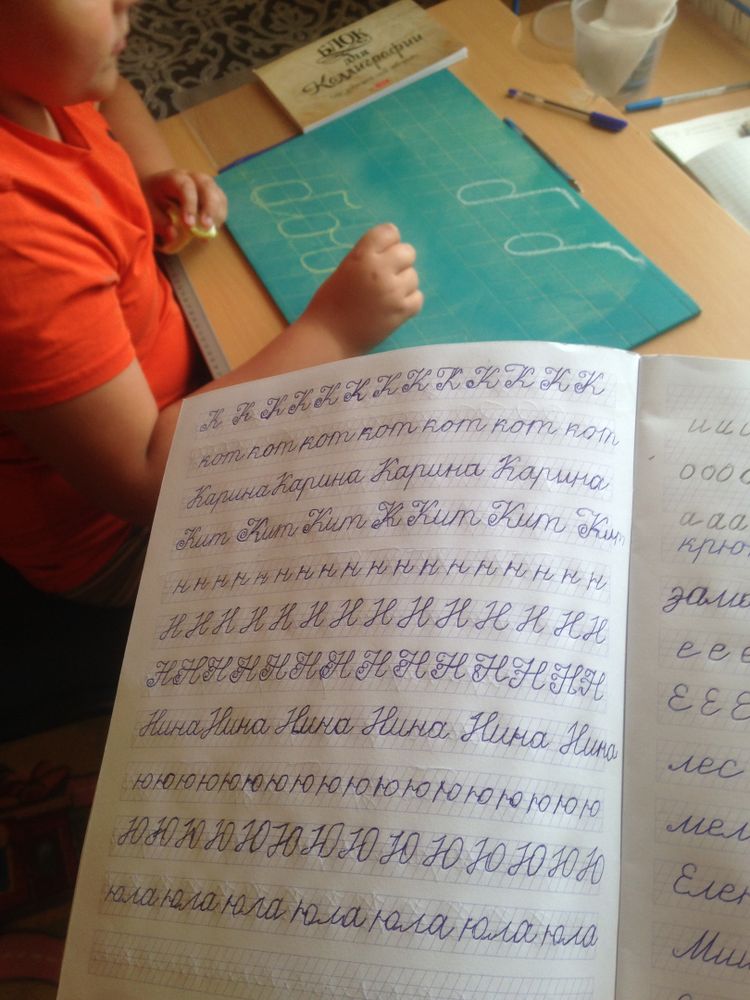 БЛОК
для
Каллиграфии
К К К К К К К К К К К К К
кот кот кот кот кот кот кот
Карина Карина Карина Карина
Кит Кит Кит К Кит Кит Кит
н н н н н н н н н н н н н н н н н н н н
Н Н Н Н Н Н Н Н Н Н Н Н Н Н
Н Н Н Н Н Н Н Н Н Н Н Н Н Н
Нина Нина Нина Нина Нина Нина
ю ю ю ю ю ю ю ю ю ю ю ю ю ю ю ю ю ю
Ю Ю Ю Ю Ю Ю Ю Ю Ю Ю Ю Ю Ю Ю
юла юла юла юла юла юла юла
о о о
а а а
е е е
Е Е Е
лес